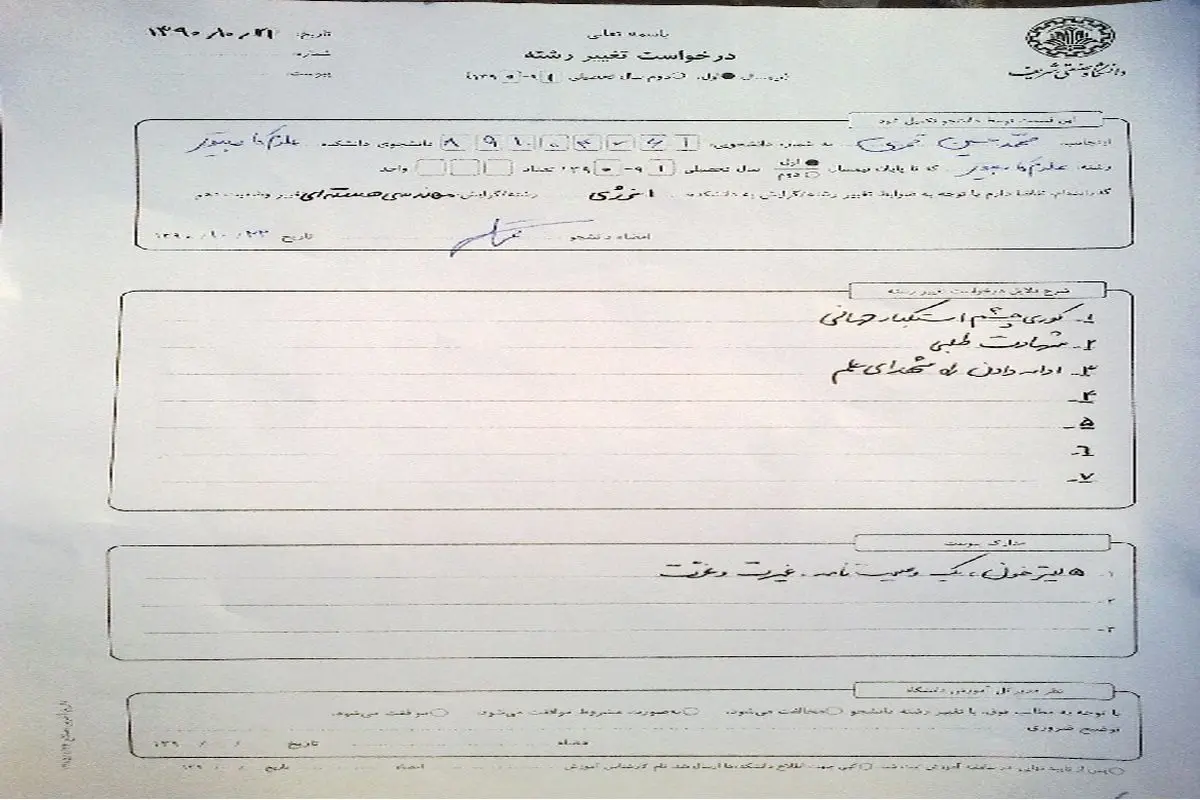 باسمه تعالی
درخواست تغییر رشته
نیمسال ● اول، ○ دوم سال تحصیلی (۱۳۹۰-۹۱)
تاریخ: ۱۳۹۰/۱۰/۲۱
شماره:
پیوست:
دانشگاه صنعتی شریف
این قسمت توسط دانشجو تکمیل شود
اینجانب: محمدحسین به شماره دانشجویی: دانشجوی دانشکده: علوم کامپیوتر
رشته: علوم کامپیوتر که تا پایان نیمسال ● اول ○ دوم سال تحصیلی ۹۱-۱۳۹۰ تعداد واحد
گذرانده‌ام، تقاضا دارم با توجه به ضوابط تغییر رشته/گرایش به دانشکده انرژی رشته/گرایش مهندسی هسته‌ای تغییر وضعیت دهم
امضاء دانشجو تاریخ ۱۳۹۰/۱۰/۲۲
شرح دلایل درخواست تغییر رشته
۱- کوری چشم استکبار جهانی
۲- شهادت طلبی
۳- ادامه دادن راه شهدای علم
۴-
۵-
۶-
۷-
مدارک پیوست
۱- ۵ لیتر خون، یک وصیت نامه، غیرت و عفت
۲-
۳-
نظر مدیر کل آموزش دانشگاه
با توجه به مطالب فوق، با تغییر رشته دانشجو ○ مخالفت می‌شود، ○ به‌صورت مشروط موافقت می‌شود، ○ موافقت می‌شود.
توضیح ضروری
امضاء تاریخ / / ۱۳۹
امضاء تاریخ / / ۱۳۹